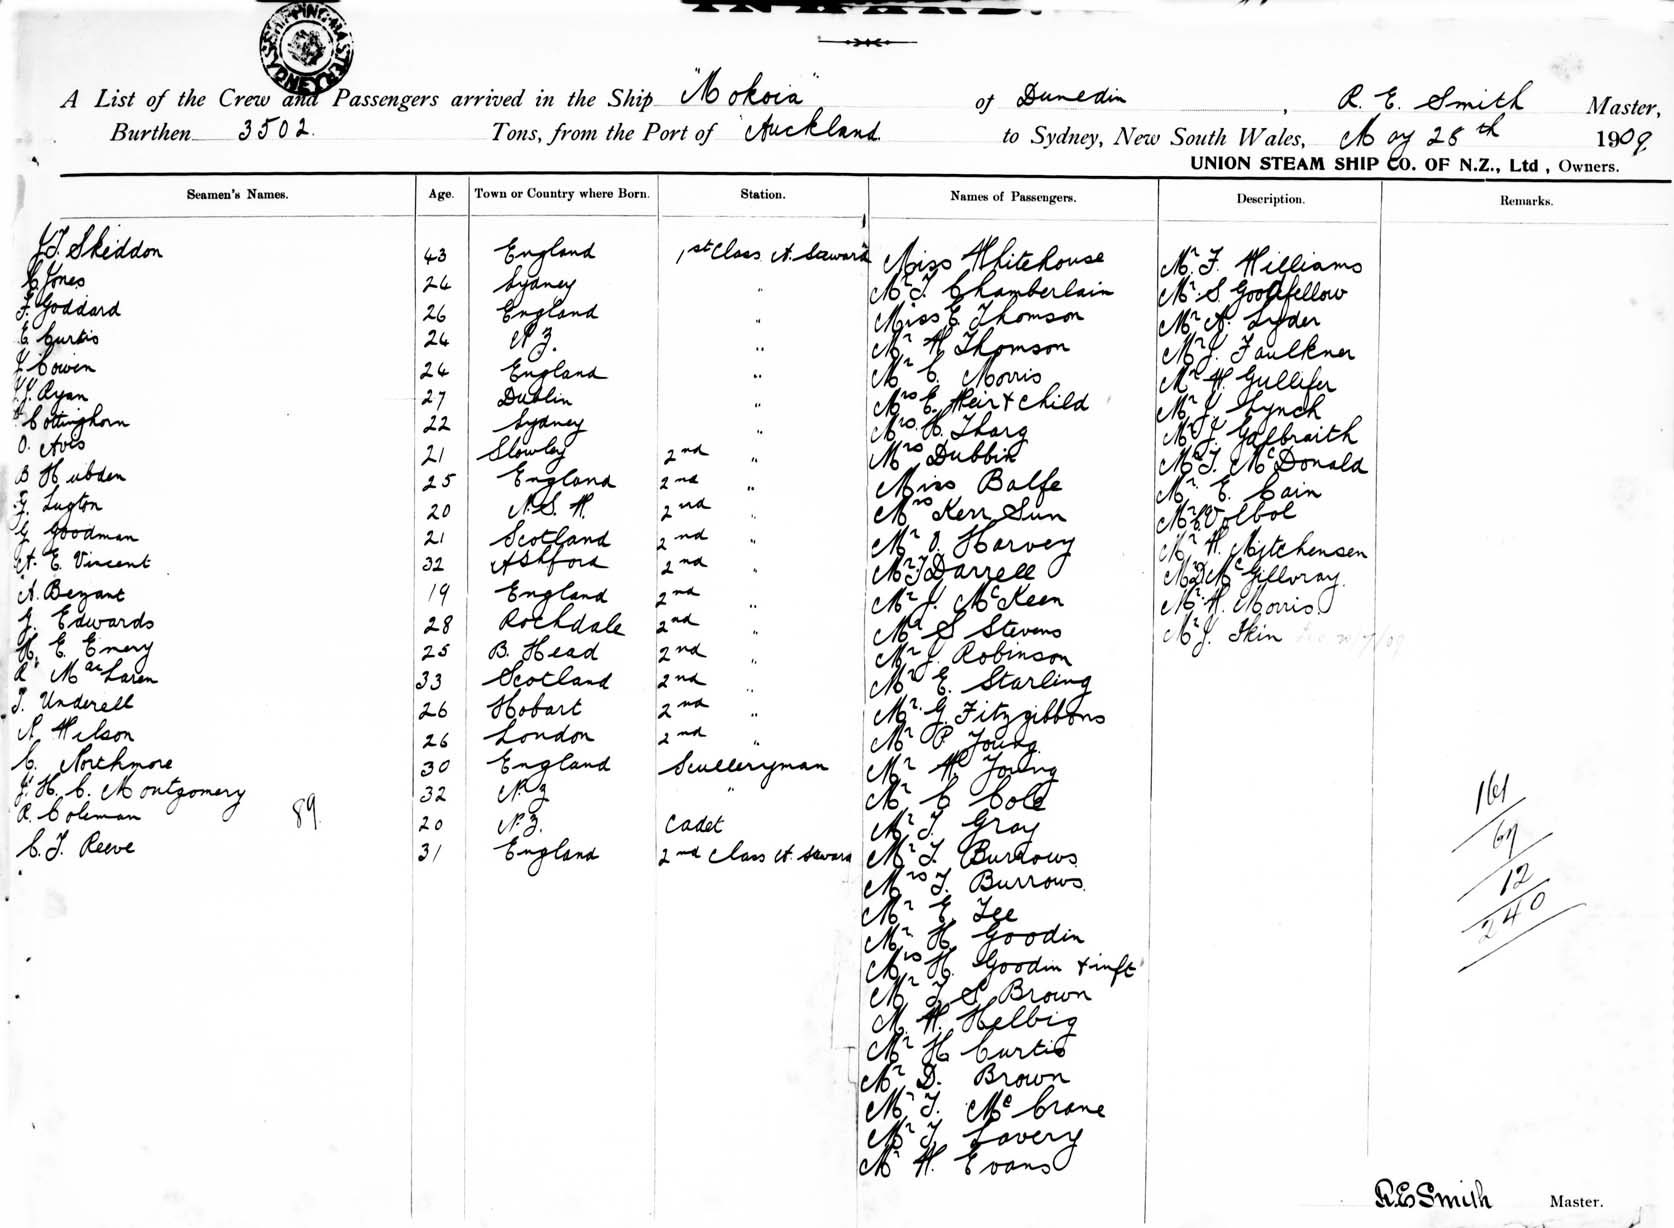 SHIPPING MASTER SYDNEY
A List of the Crew and Passengers arrived in the Ship "Mokoia" of Dunedin, R. E. Smith Master,
Burthen 3502. Tons, from the Port of Auckland to Sydney, New South Wales, May 28th 1909.
UNION STEAM SHIP CO. OF N.Z., Ltd , Owners.
Seamen's Names. Age. Town or Country where Born. Station. Names of Passengers. Description. Remarks.
Skeddon 43 England 1st Class A. Steward Miss Whitehouse Mr. F. Williams
C Jones 24 Sydney " Mr T. Chamberlain Mr. S. Goodfellow
F. Goddard 26 England " Miss E. Thomson Mr A. Lyder
E Curtis 24 N.Z. " Mr W Thomson Mr J. Faulkner
J Cowen 24 England " Mr C. Morris Mr H. Gullifer
Ryan 27 Dublin " Mrs E. Weir & Child Mr J. Lynch
Cottinghorn 22 Sydney " Mrs. H. Tharg Mr J. Galbraith
O. Avis 21 Slowley 2nd " Mrs Dubbin Mr T. McDonald
B Hubden 25 England 2nd " Miss Balfe Mr. E. Cain
F. Lugton 20 N.S.W. 2nd " Mrs Kerr Sun Mr Volbol
G Goodman 21 Scotland 2nd " Mr O. Harvey Mr H. Mitchensen
A. E. Vincent 32 Ashford 2nd " Mr T Darrell Mr D McGillvray.
A. Bezant 19 England 2nd " Mr J. McKeen Mr. H. Morris.
J. Edwards 28 Rochdale 2nd " Mr S Stevens Mr J. Skin
H. E. Emery 25 B. Head 2nd " Mr J. Robinson
R. MacLaren 33 Scotland 2nd " Mr E. Starling
T. Underell 26 Hobart 2nd " Mr. G. Fitzgibbons
N. Wilson 26 London 2nd " Mr P Young.
C. Northmore 30 England Sculleryman Mr W Young
J. H. C. Montgomery 32 N.Z " Mr C Cole
R. Coleman 89 20 N.Z. Cadet Mr T. Gray
C. J. Reeve 31 England 2nd Class A. Steward Mr T. Burrows
Mrs T. Burrows.
Mr E. Lee
Mr H. Goodin
Mrs H. Goodin & inft
Mr T S. Brown
M. W. Helbig
Mr H Curtis
Mr D. Brown
Mr T. McCrane
Mr T Lavery
Mr H. Evans
161
67
12
240
R.E Smith Master.